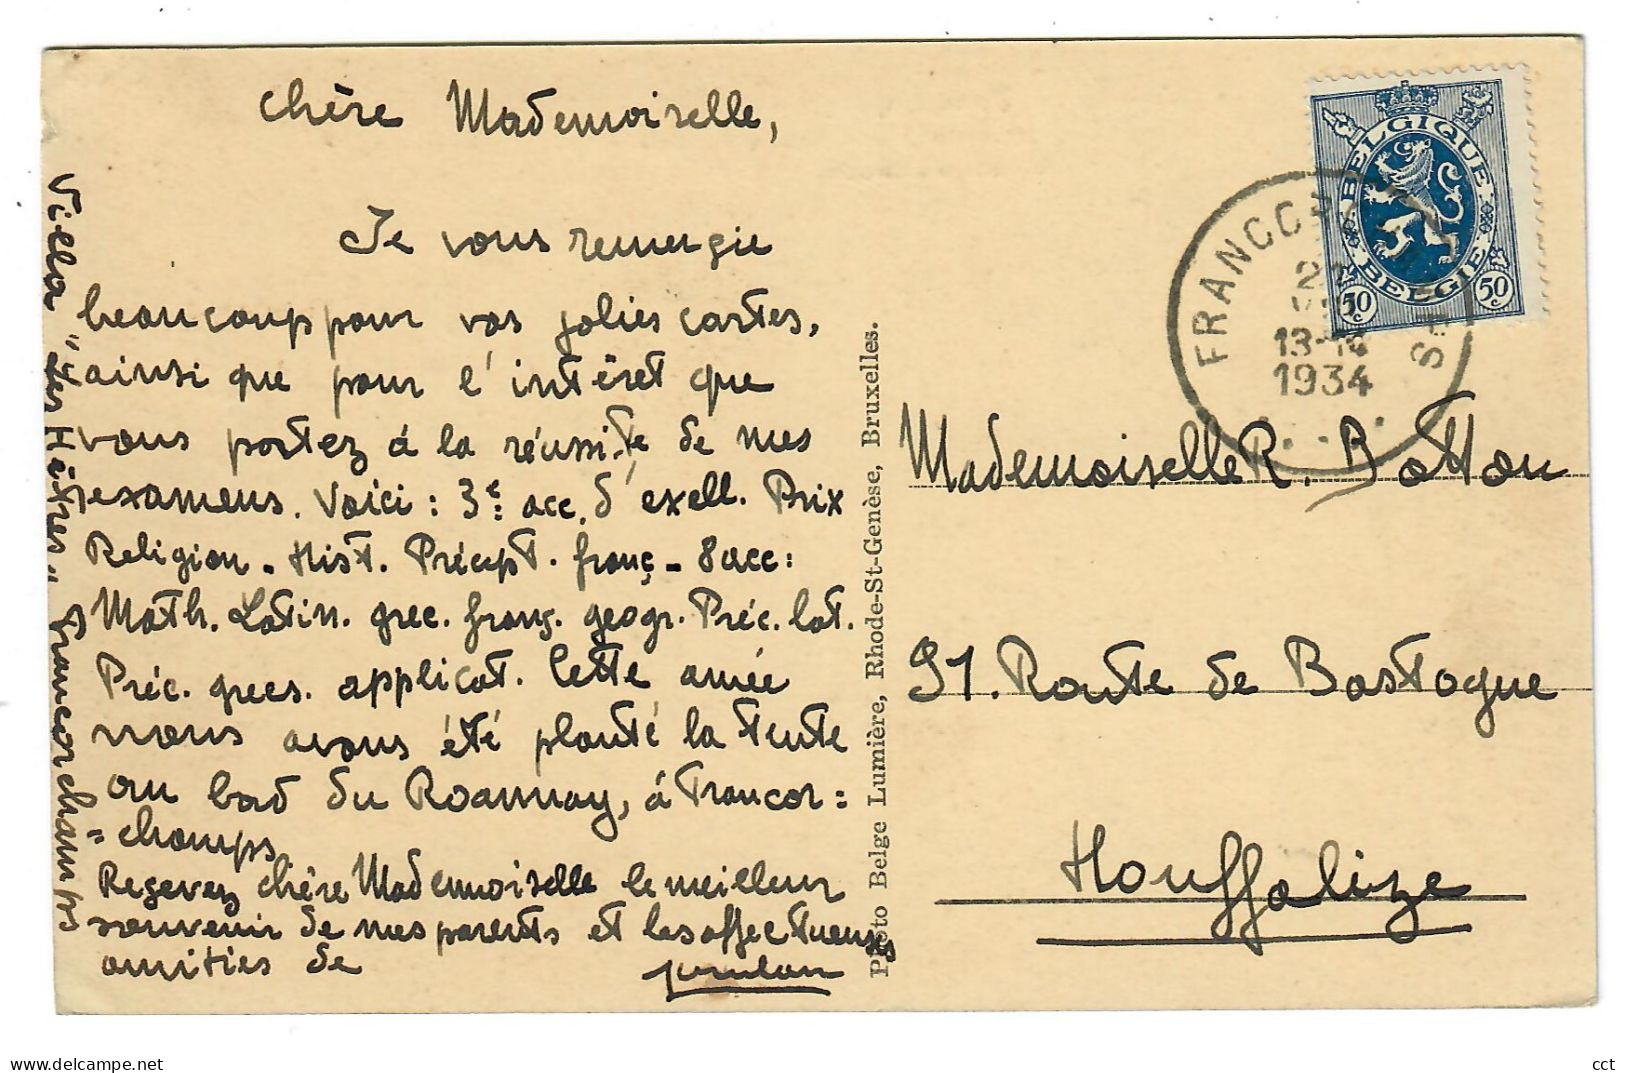 Chère Mademoiselle,
Je vous remergie
beaucoup pour vos jolies cartes,
ainsi que pour l'intêret que
vous portez á la réussite de mes
examens. Voici : 3e acc. d'exell. Prix
Religion - Hist. Précept. franç - 8 acc :
Math. Latin. grec. franç. geogr. Préc. lat.
Préc. grecs. applicat. Cette année
nous avons été planté la tente
au bad du Roannay, á Francor=
=champs.
Regevez chère Mademoiselle le meilleur
souvenir de mes parents et les affectueuses
amitiés de
Villa "Les Hêtres" Francorchamps
Photo Belge Lumière, Rhode-St-Genèse, Bruxelles.
BELGIQUE
BELGIE
50c 50c
FRANCOR
13-14
1934
Mademoiselle R. Botton
91. Route de Bastogne
Houffalize
www.delcampe.net
cct